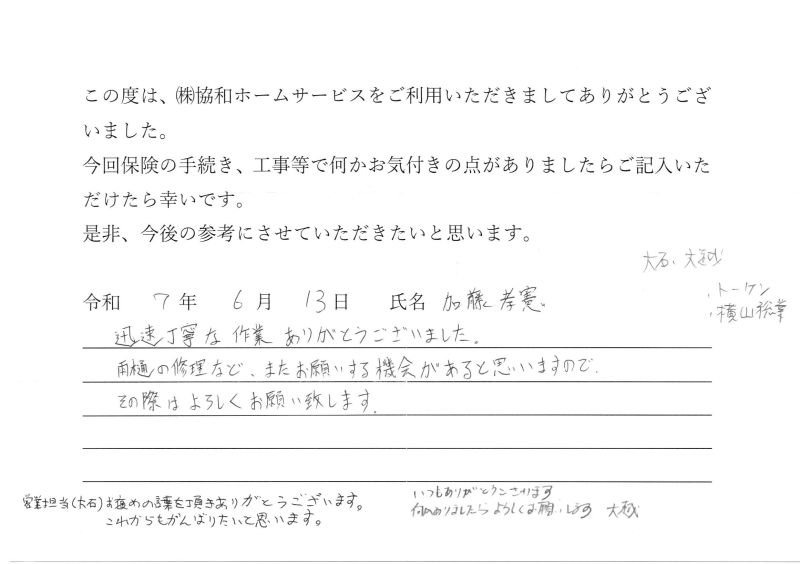 この度は、㈱協和ホームサービスをご利用いただきましてありがとうござ
いました。
今回保険の手続き、工事等で何かお気付きの点がありましたらご記入いた
だけたら幸いです。
是非、今後の参考にさせていただきたいと思います。
大石、大越
令和 7 年 6 月 13 日 氏名 加藤 孝憲
・トーケン
・横山総業
迅速丁寧な作業ありがとうございました。
雨樋の修理など、またお願いする機会があると思いますので、
その際はよろしくお願い致します。
営業担当(大石)お褒めの言葉を頂きありがとうございます。
これからもがんばりたいと思います。
いつもありがとうございます
何かありましたらよろしくお願いします 大越